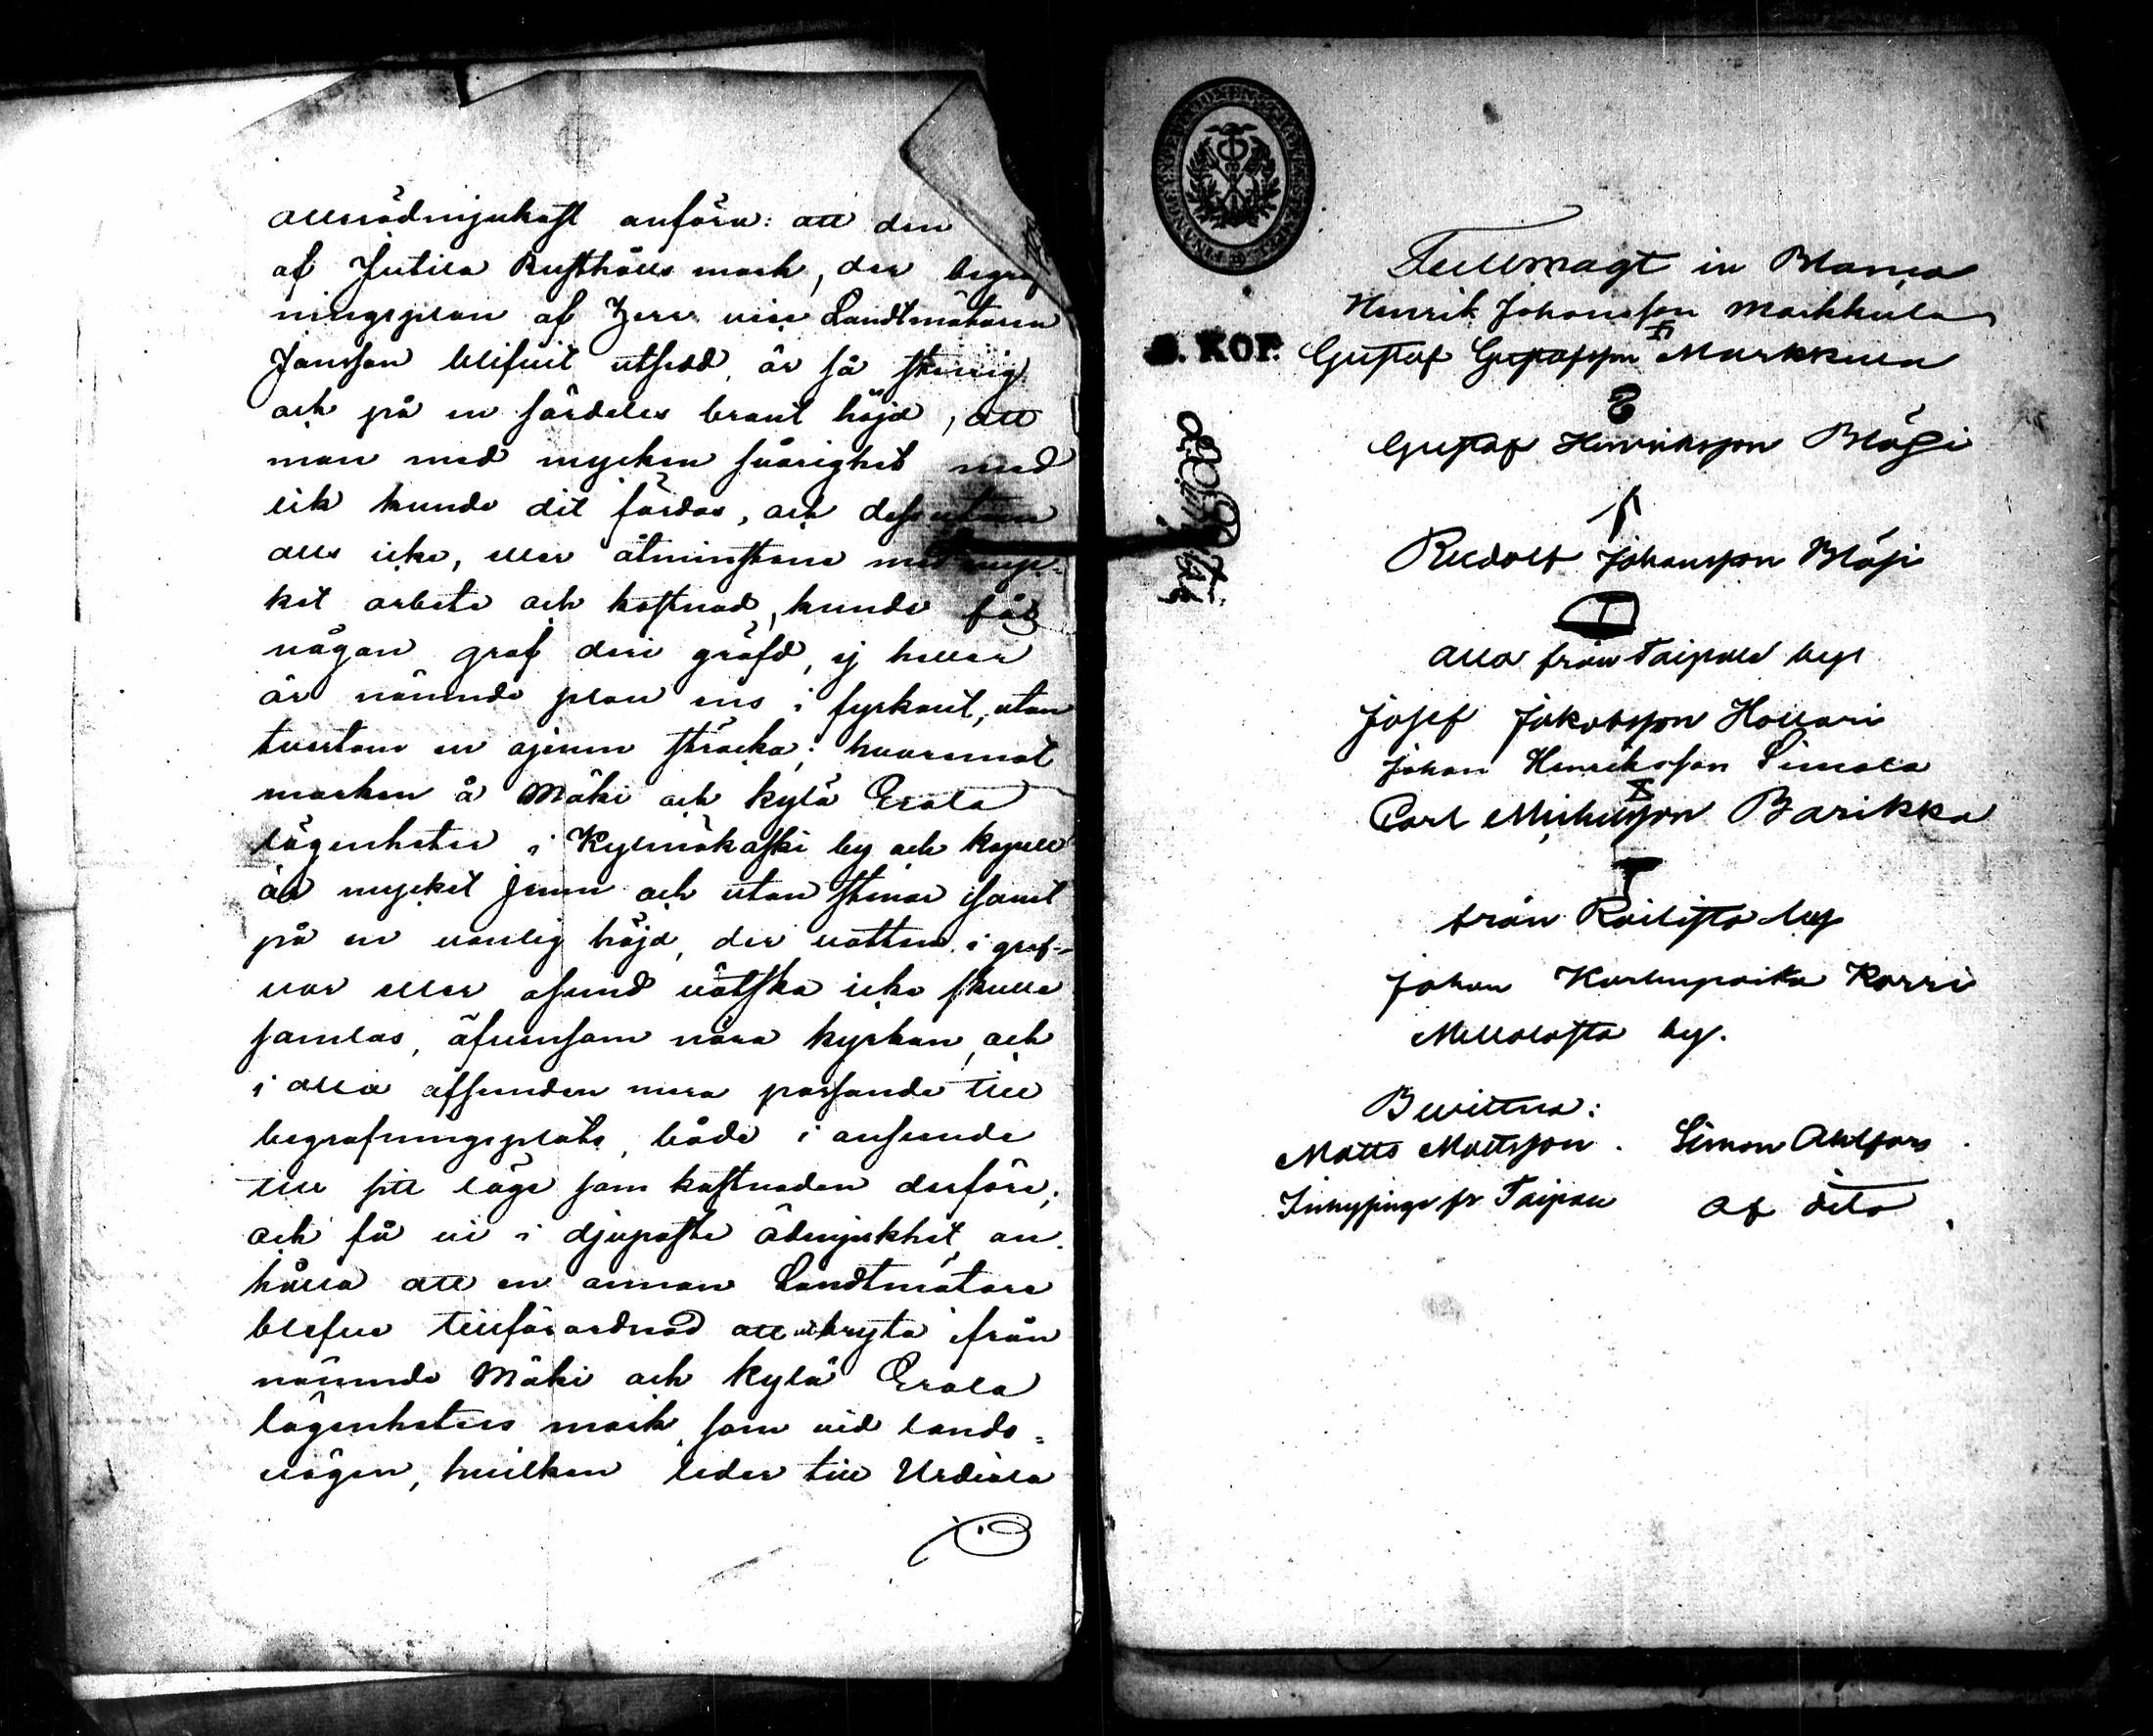 allerödmjukast anföra: att den
af Jutila Rusthålls mark, der begraf
ningsplan af Herr vice Landtmätaren
Jansson blifvit utsedd, är så stenig
och på en särdeles brant höjd, att
man med mycken svårighet med
lik kunde dit färdas, och dessutom
alls icke, eller åtminstone med myc-
ket arbete och kostnad, kunde få
någon graf deri gräfd, ej heller
är nämnde plan ens i fyrkant, utan
tvertom en ojemn sträcka; hvaremot
marken å Mäki och Kylä Erola
lägenheter i Kylmäkoski by och kapell
är mycket jemn och utan stenar samt
på en vanlig höjd, der vatten i graf-
var eller osund vätska icke skulle
samlas, äfvensom nära kyrkan, och
i alla afseenden mera passande till
begrafningsplats, både i anseende
till sitt läge som kostnaden derföre;
och få vi i djupaste ödmjukhet an-
hålla att en annan Landtmätare
blefve tillförordnad att utbryta ifrån
nämnde Mäki och Kylä Erola
lägenheters mark, som vid lands=
vägen, hvilken leder till Urdiala
Fullmagt in Blanco
Henrik Johansson Markkula
S. KOP. Gustaf Gustafsson Markkula
Gustaf Henriksson Bläfi
Rudolf Johansson Bläfi
alla från Taipale by
Josef Jakobsson Hollari
Johan Henriksson Simola
Carl Michelsson Barikka
från Railista by
Johan Karlenpoika Korri
Mellolasta by.
Bevittna:
Matts Mattsson. Simon Ahlfors
Inhysinge fr Taipale af dito